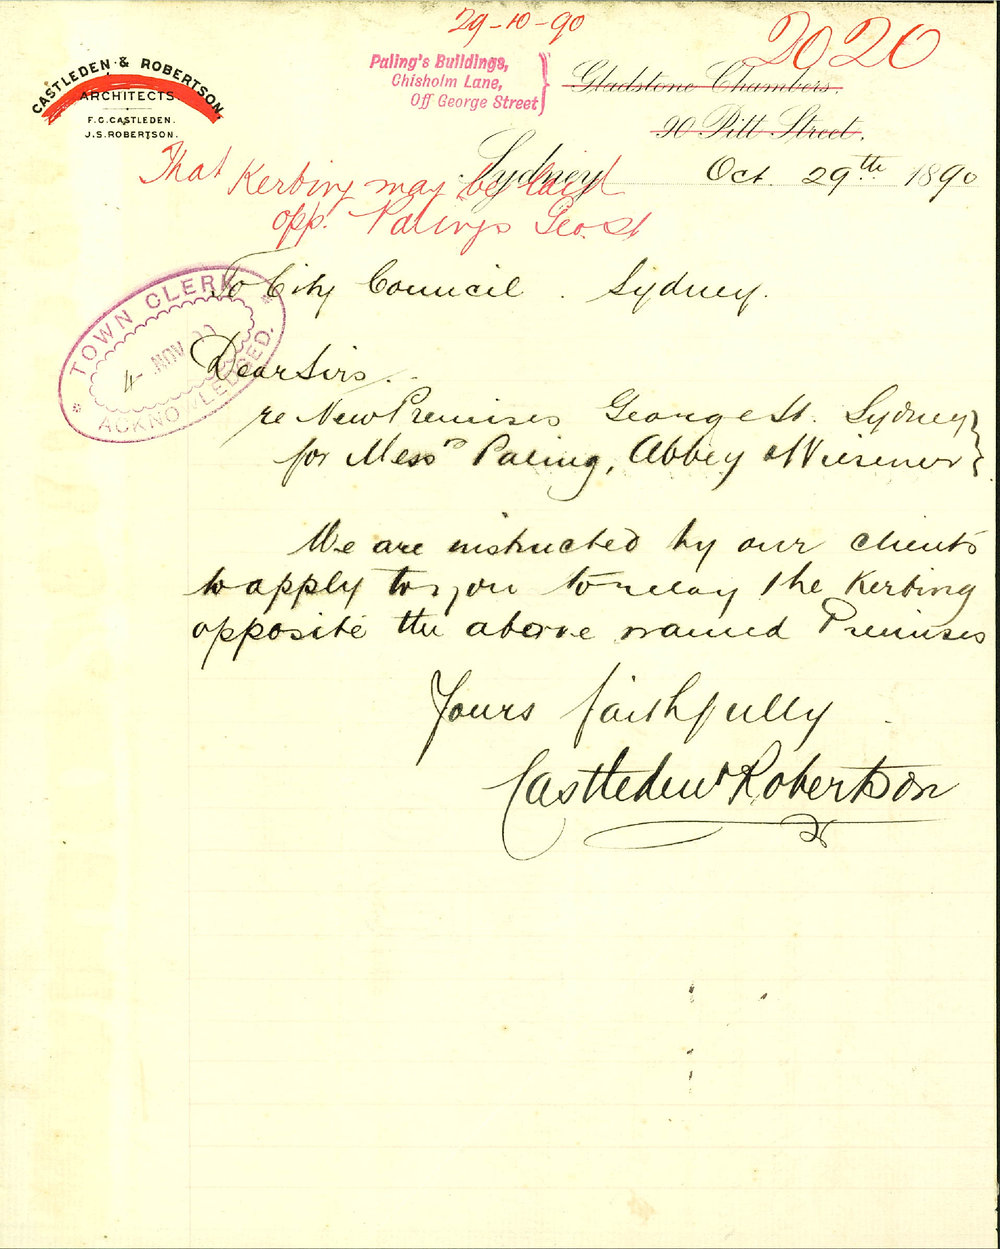 29-10-90
2020
CASTLEDEN & ROBERTSON.
ARCHITECTS
F.G. CASTLEDEN.
J.S. ROBERTSON.
Paling's Buildings,
Chisholm Lane,
Off George Street
Gladstone Chambers.
90 Pitt Street.
Sydney Oct. 29th 1890
That Kerbing may be laid
opp. Palings Geo. St
To City Council . Sydney.
TOWN CLERK
4 NOV 90
ACKNOWLEDGED.
Dear Sirs.
re New Premises George St. Sydney
for Messrs Paling, Abbey & Wiesener
We are instructed by our clients
to apply to you to relay the Kerbing
opposite the above named Premises
Yours faithfully
Castleden & Robertson